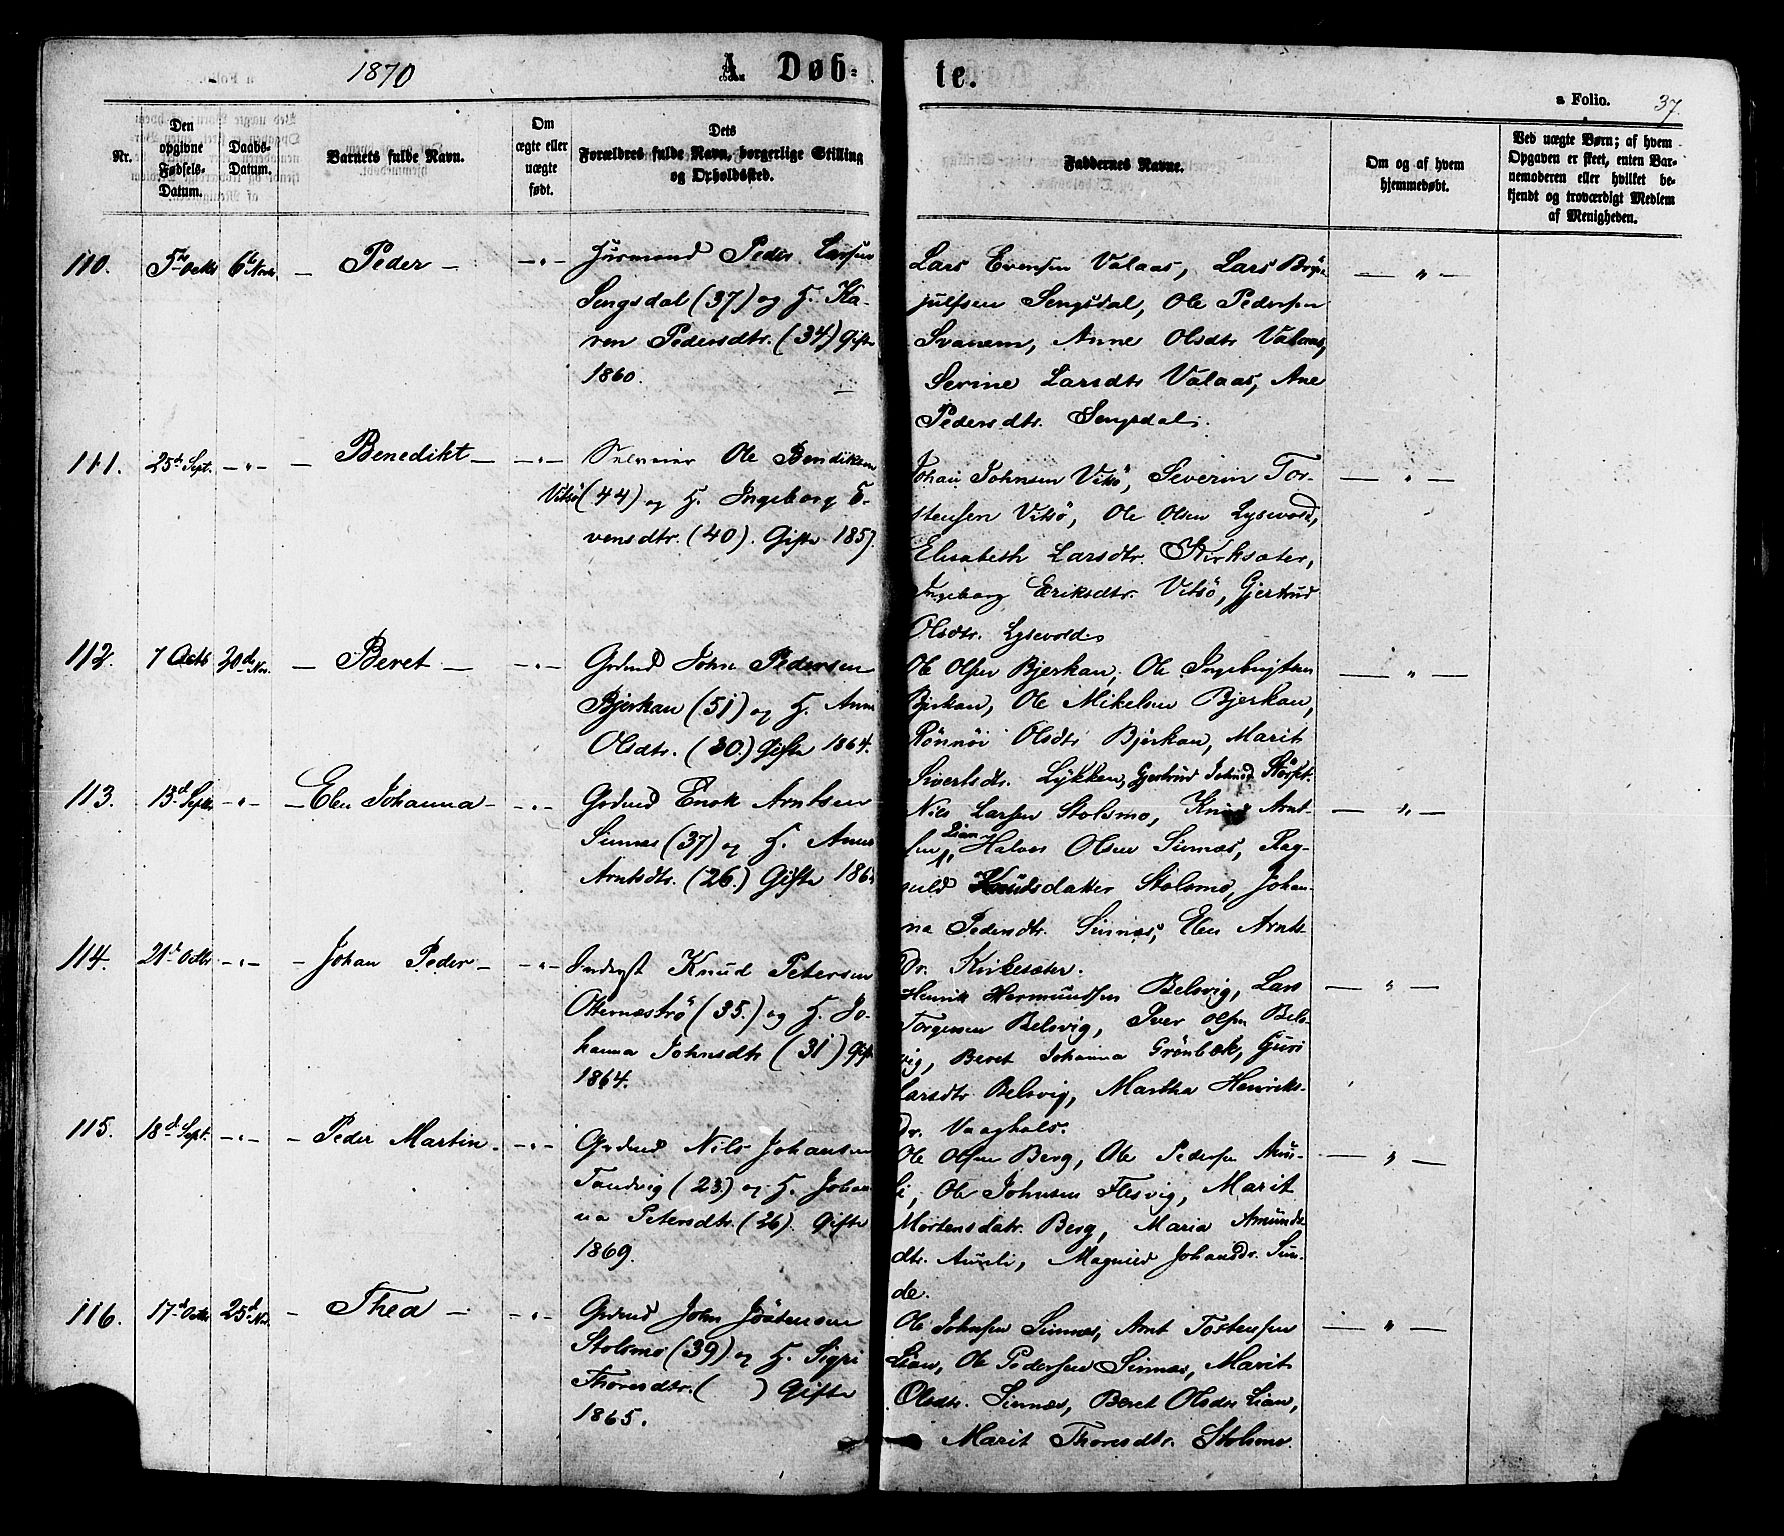 1870
A. Døb-
te.
a Folio. 37.
Nr.
Den
opgivne
Fødsels-
Datum.
Daabs-
Datum.
Barnets fulde Navn.
Om
ægte eller
uægte
født.
Dets
Forældres fulde Navn, borgerlige Stilling
og Opholdssted.
Faddernes Navne.
Om og af hvem
hjemmedøbt.
Ved uægte Børn; af hvem
Opgaven er skeet, enten Bar-
nemoderen eller hvilket be-
kjendt og troværdigt Medlem
af Menigheden.
110. 5te Octb 6te Novb. — Peder — — " —
Husmand Peder Larsen
Sengsdal (37) og H. Ka-
ren Pedersdtr. (34) Gifte
1860.
Lars Evensen Valaas, Lars Bryn-
julfsen Sengsdal, Ole Pedersen
Svanem, Anne Olsdtr Valaas,
Serine Larsdtr Valaas, Ane
Pedersdtr. Sengsdal.
— " —
111. 25de Sept. — " — — Benedikt — — " —
Selveier Ole Bendiksen
Vitsø (44) og H. Ingeborg E-
vensdtr. (40). Gifte 1857.
Johan Johnsen Vitsø, Severin Tor-
stensen Vitsø, Ole Olsen Lysevold,
Elisabeth Larsdtr. Kirksæter,
Ingeborg Eriksdtr. Vitsø, Gjertrud
Olsdtr. Lysevold.
— " —
112. 7 Octb 20de Nov. — Beret — — " —
Grdmd John Pedersen
Bjerkan (51) og H. Anne
Olsdtr. (30.) Gifte 1864.
Ole Olsen Bjerkan, Ole Ingebrigtsen
Bjerkan, Ole Mikelsen Bjerkan,
Rønnøi Olsdtr Bjerkan, Marit
Sivertsdtr. Lykken, Gjertrud Johnsd.
— " —
113. 13de Septb — " — — Elen Johanna — — " —
Grdmd Enok Arntsen
Sinnæs (37) og H. Anne
Arntsdtr. (26.) Gifte 186
Nils Larsen Stolsmo, Knud Arnt-
sen Lian, Halvor Olsen Sinnæs, Rag-
nild Knudsdatter Stolsmo, Johan-
na Pedersdtr. Sinnæs, Elen Arnts-
Dr. Kirkesæter.
— " —
114. 21de Octb — " — — Johan Peder — — " —
Inderst Knud Petersen
Oternæströ (35.) og H. Jo-
hanna Johnsdtr (31) Gifte
1864.
Henrik Hermundsen Belsvig, Lars
Torgersen Belsvig, Iver Olsen Bels-
vig, Beret Johanna Grönbæk, Guri
Larsdtr Belsvig, Martha Henriks-
Dr. Vaaghals.
— " —
115. 18de Sept. — " — — Peder Martin — — " —
Grdmd Nils Johansen
Tandvig (23.) og H. Johan-
na Petersdtr. (26). Gifte
1869.
Ole Olsen Berg, Ole Pedersen Aun-
li, Ole Johnsen Flesvig, Marit
Mortensdatr. Berg, Maria Amunds-
dtr. Aunli, Magnild Johansdr. Sun-
de.
— " —
116. 17de Octb 25de Nov. — Thea — — " —
Grdmd John Jöstensen
Stolsmo (39) og H. Sigri
Thoresdtr. ( ) Gifte
1865.
Ole Johnsen Sinnæs, Arnt Tostensen
Lian, Ole Pedersen Sinnæs, Marit
Olsdtr. Sinnæs, Beret Olsdtr Lian,
Marit Thoresdtr. Stolsmo.
— " —